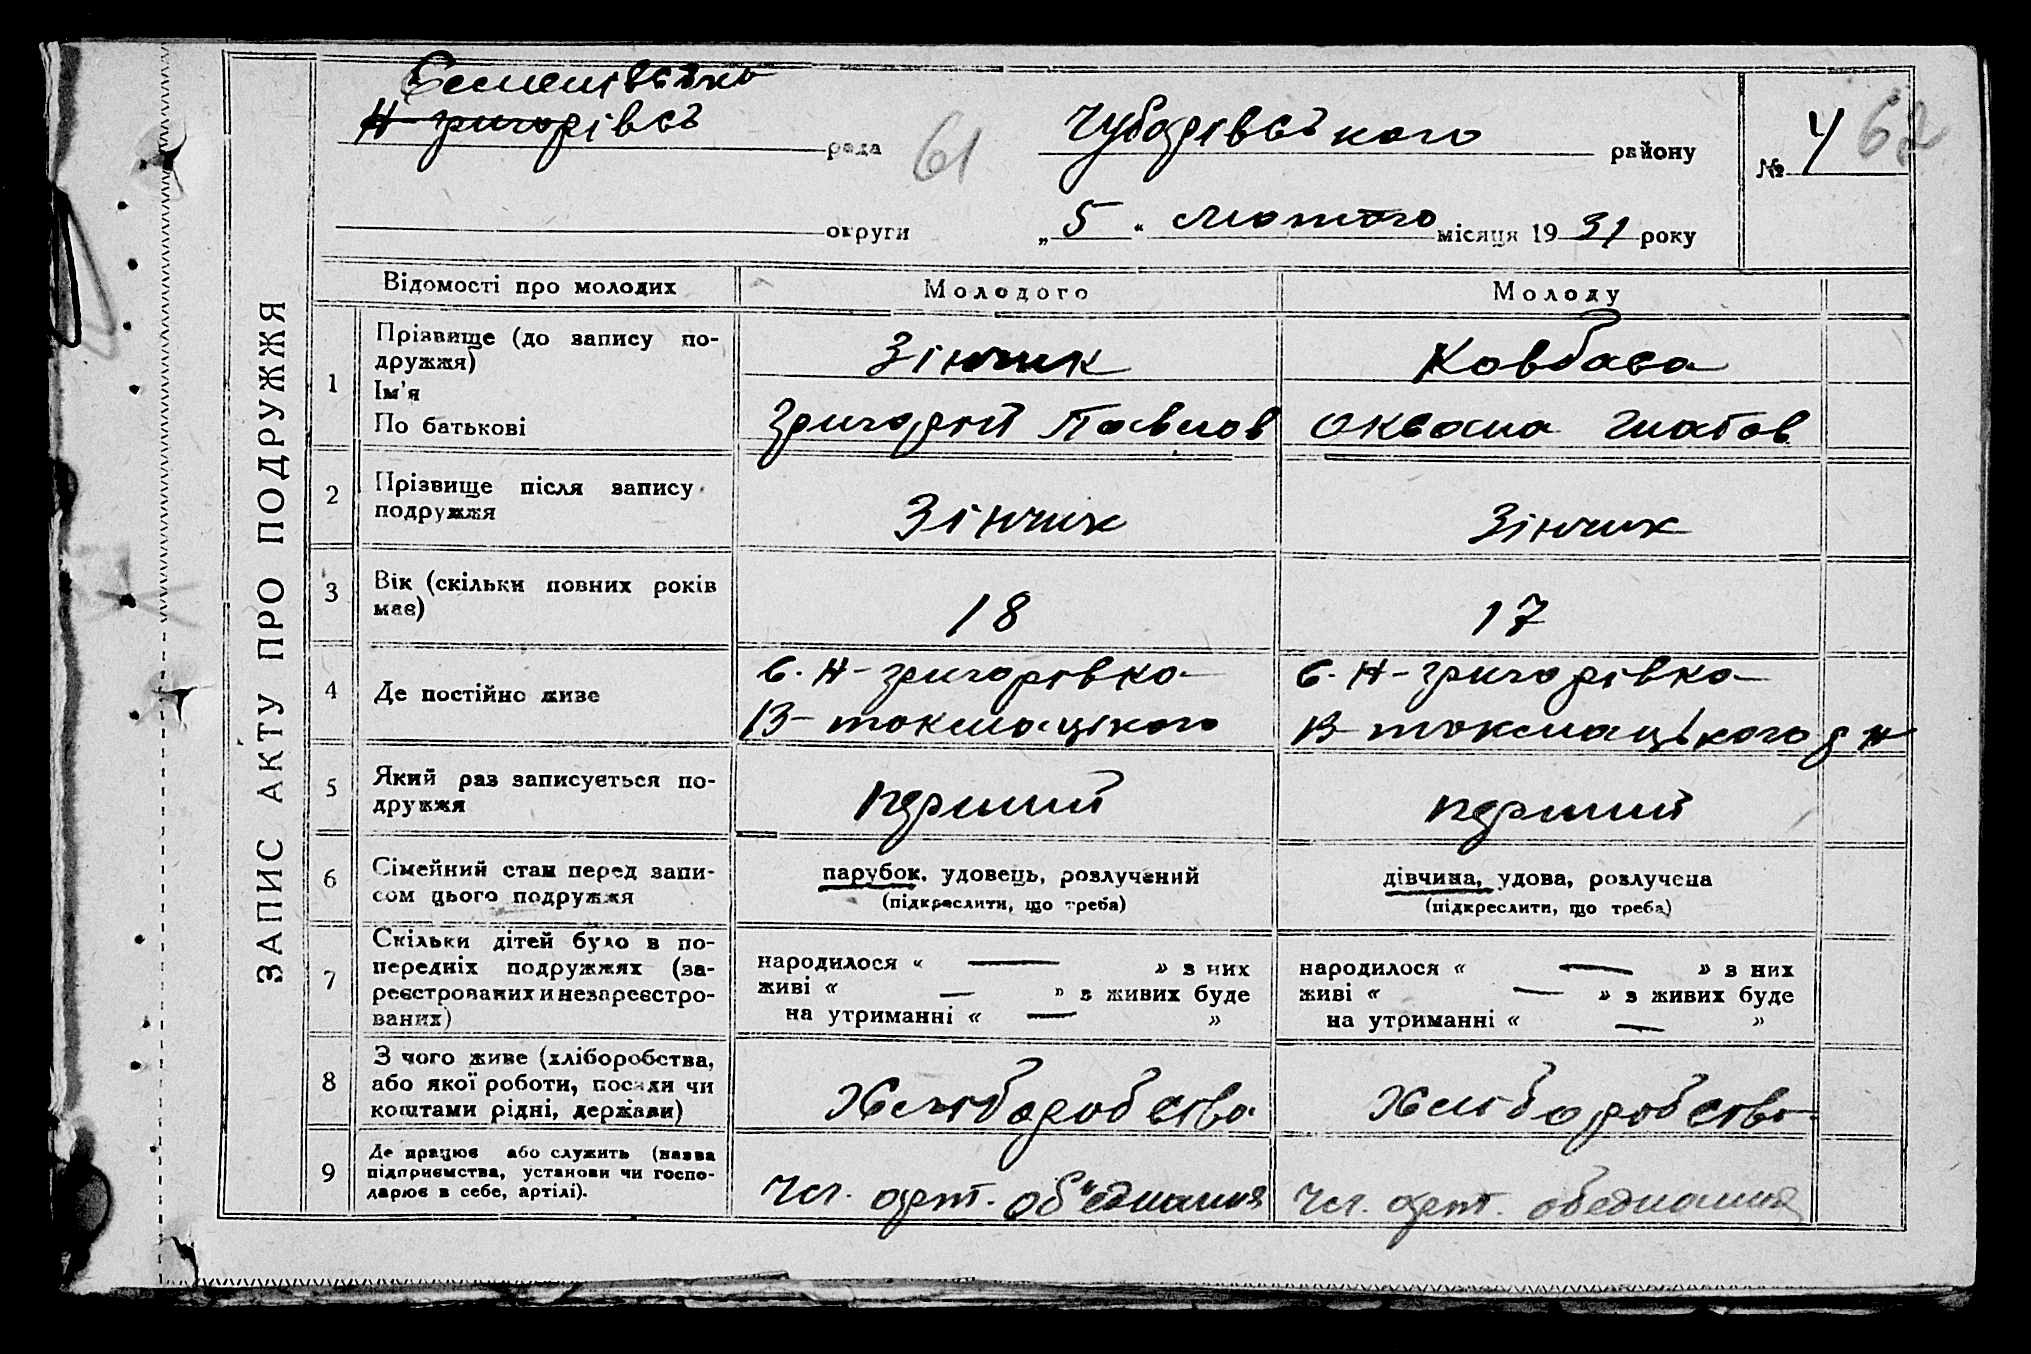 Семенівська
Н-григорівсь
рада
61
Чубарівського
району
№ 4
62
округи
„ 5 “ лютого місяця 19 31 року
ЗАПИС АКТУ ПРО ПОДРУЖЖЯ
Відомості про молодих
Молодого
Молоду
1
Прізвище (до запису по-
дружжя)
Ім'я
По батькові
Зінчик
Григорій Павлов
Ковбаса
Оксана Гнатов
2
Прізвище після запису
подружжя
Зінчик
Зінчик
3
Вік (скільки повних років
має)
18
17
4
Де постійно живе
с. Н-григорівка
В-токмацького
с. Н-григорівка
В-токмацького р н
5
Який раз записується по-
дружжя
перший
перший
6
Сімейний стан перед запи-
сом цього подружжя
парубок, удовець, розлучений
(підкреслити, що треба)
дівчина, удова, розлучена
(підкреслити, що треба)
7
Скільки дітей було в по-
передніх подружжях (за-
реєстрованих и незареєстро-
ваних)
народилося « — » з них
живі « — » з живих буде
на утриманні « — »
народилося « — » з них
живі « — » з живих буде
на утриманні « — »
8
З чого живе (хліборобства,
або якої роботи, посади чи
коштами рідні, держави)
Хліборобство
Хліборобство
9
Де працює або служить (назва
підприємства, установи чи госпо-
дарює в себе, артілі).
Чл. арт. об"єднання
Чл. арт. обєднання